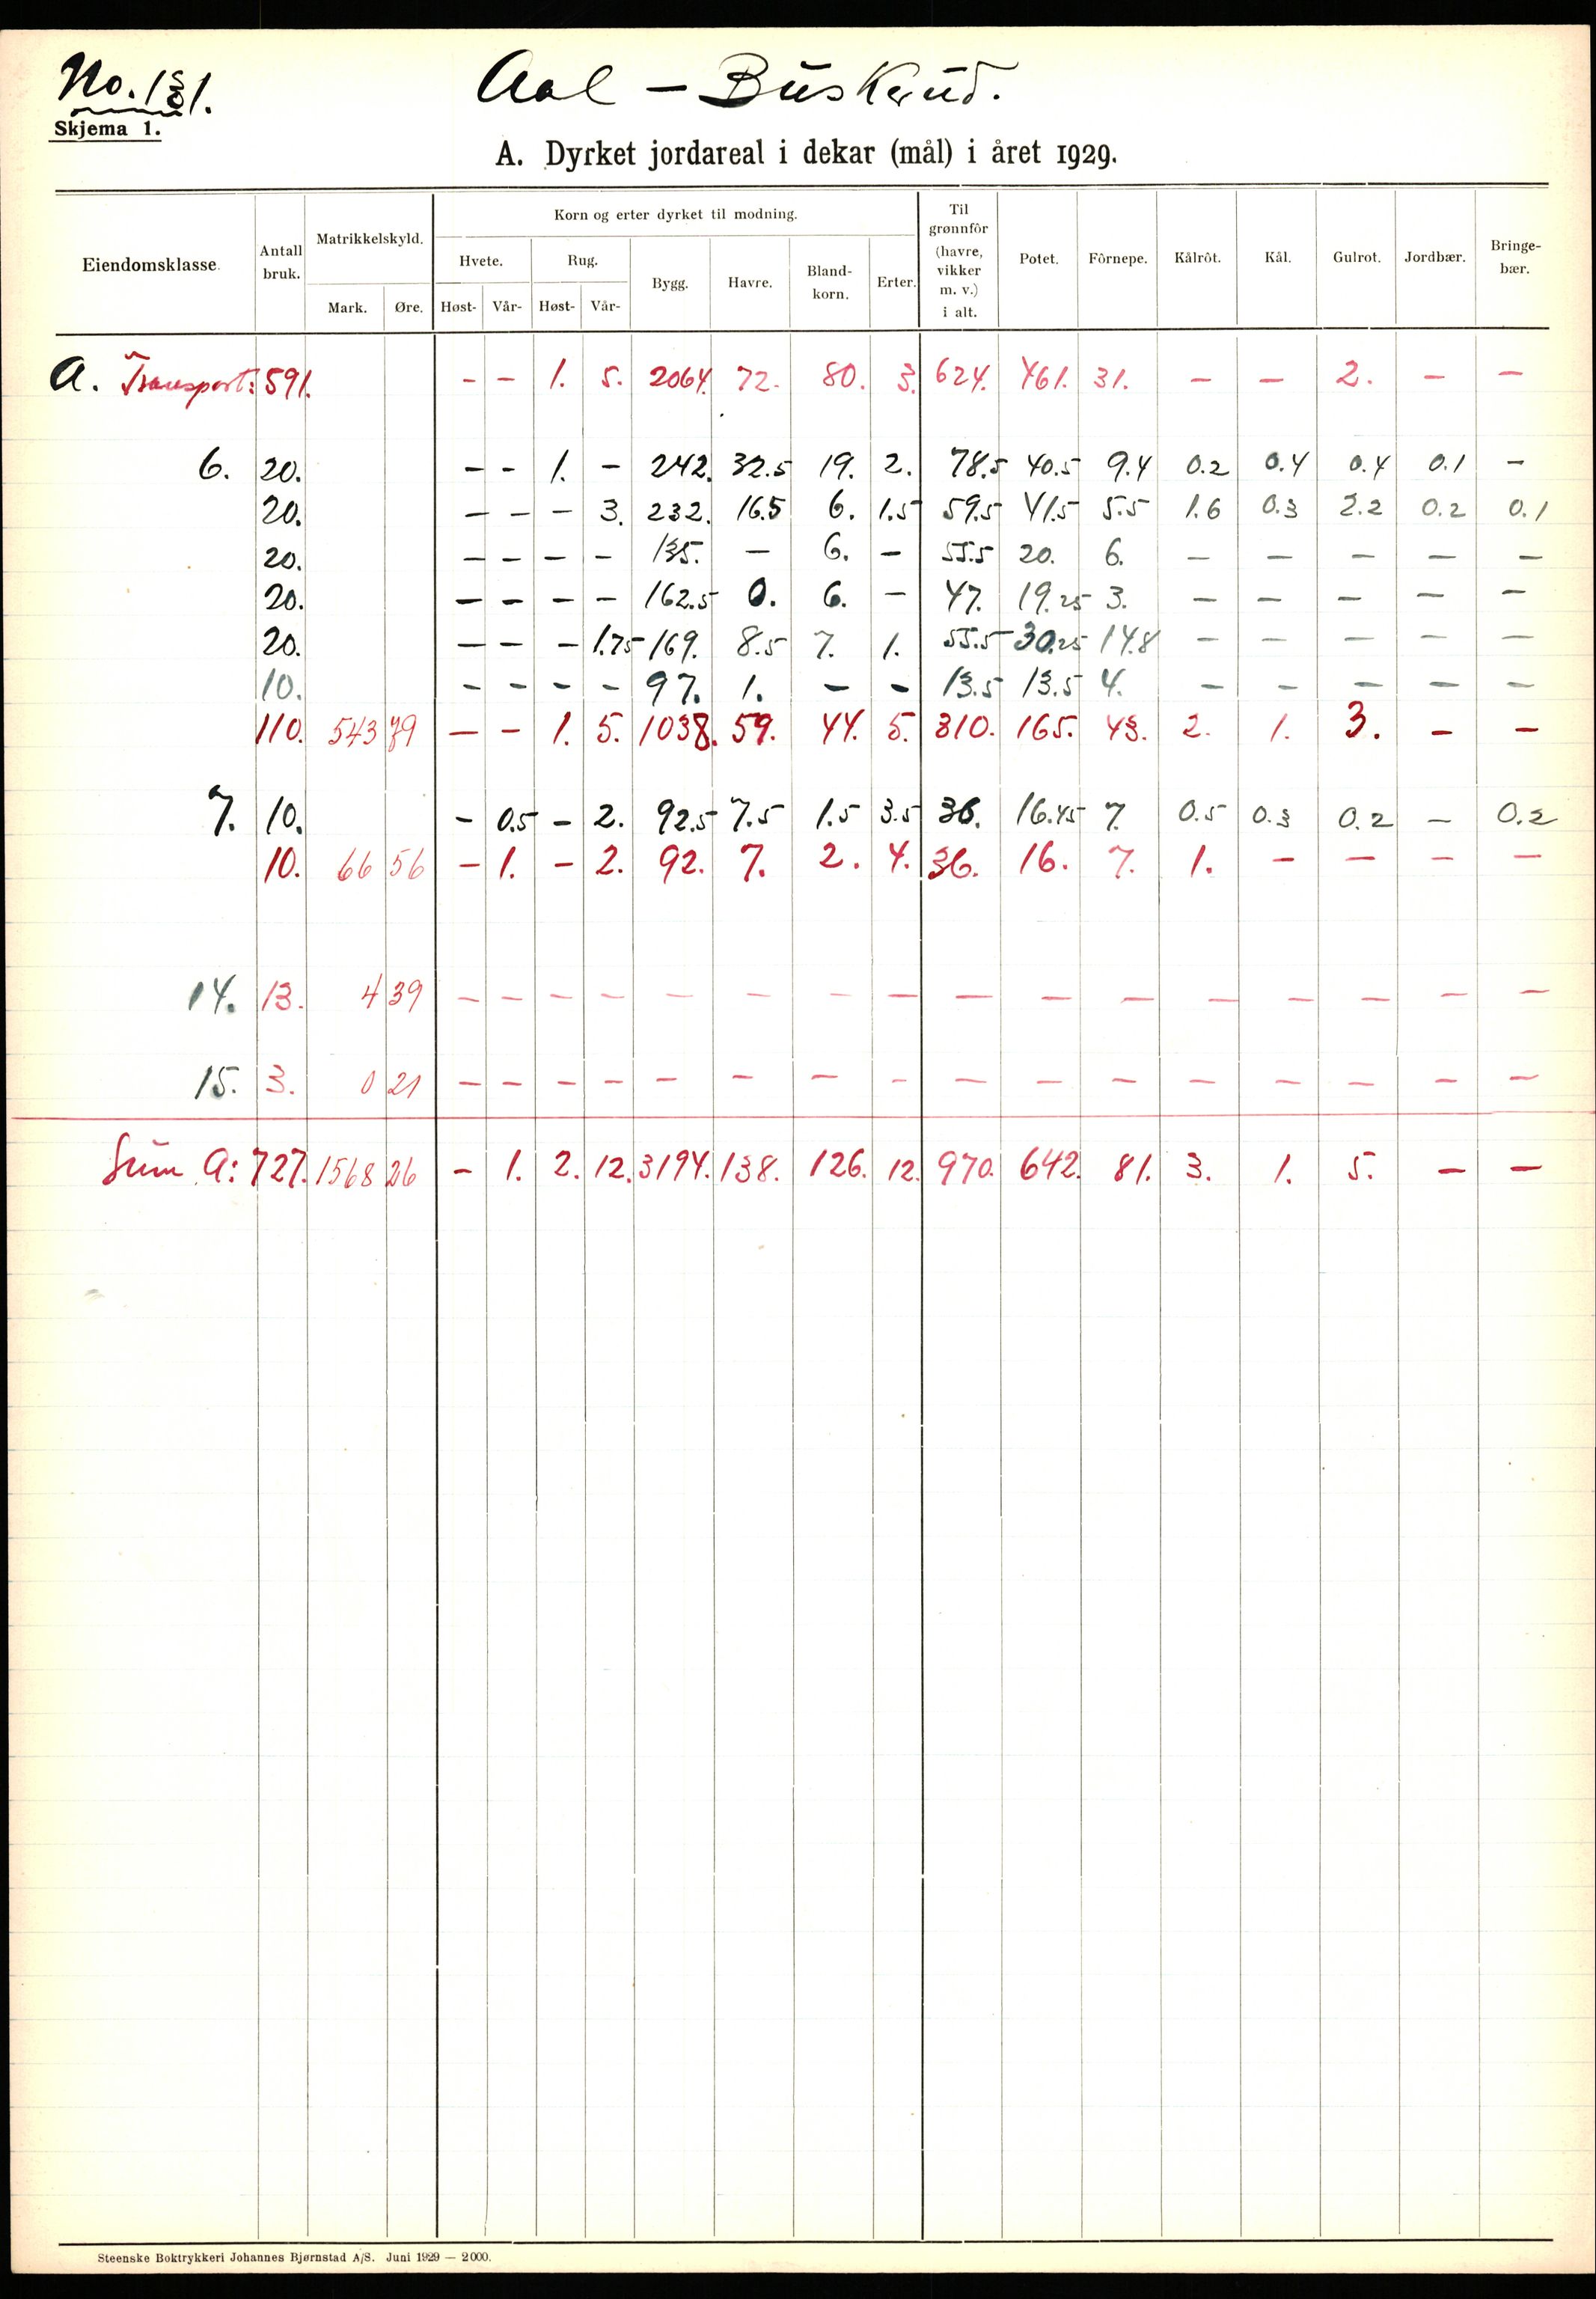 No. 1 1.
Aal — Buskerud.
Skjema 1.
A. Dyrket jordareal i dekar (mål) i året 1929.
Eiendomsklasse. Antall bruk. Matrikkelskyld. Mark. Øre. Korn og erter dyrket til modning. Hvete. Høst- Vår- Rug. Høst- Vår- Bygg. Havre. Bland-korn. Erter. Til grønnfôr (havre, vikker m. v.) i alt. Potet. Fôrnepe. Kålrôt. Kål. Gulrot. Jordbær. Bringe-bær.
A. Transport: 591. - - 1. 5. 2064. 72. 80. 3. 624. 461. 31. - - 2. - -
6. 20. - - 1. - 242. 32.5 19. 2. 78.5 40.5 9.4 0.2 0.4 0.4 0.1 -
20. - - - 3. 232. 16.5 6. 1.5 59.5 41.5 5.5 1.6 0.3 2.2 0.2 0.1
20. - - - - 135. - 6. - 55.5 20. 6. - - - - -
20. - - - - 162.5 0. 6. - 47. 19.25 3. - - - - -
20. - - - 1.75 169. 8.5 7. 1. 55.5 30.25 14.8 - - - - -
10. - - - - 97. 1. - - 13.5 13.5 4. - - - - -
110. 543 79 - - 1. 5. 1038. 59. 44. 5. 310. 165. 43. 2. 1. 3. - -
7. 10. - 0.5 - 2. 92.5 7.5 1.5 3.5 36. 16.45 7. 0.5 0.3 0.2 - 0.2
10. 66 56 - 1. - 2. 92. 7. 2. 4. 36. 16. 7. 1. - - - -
14. 13. 4 39 - - - - - - - - - - - - - - - -
15. 3. 0 21 - - - - - - - - - - - - - - - -
Sum A: 727. 1568 26 - 1. 2. 12. 3194. 138. 126. 12. 970. 642. 81. 3. 1. 5. - -
Steenske Boktrykkeri Johannes Bjørnstad A/S. Juni 1929 — 2000.